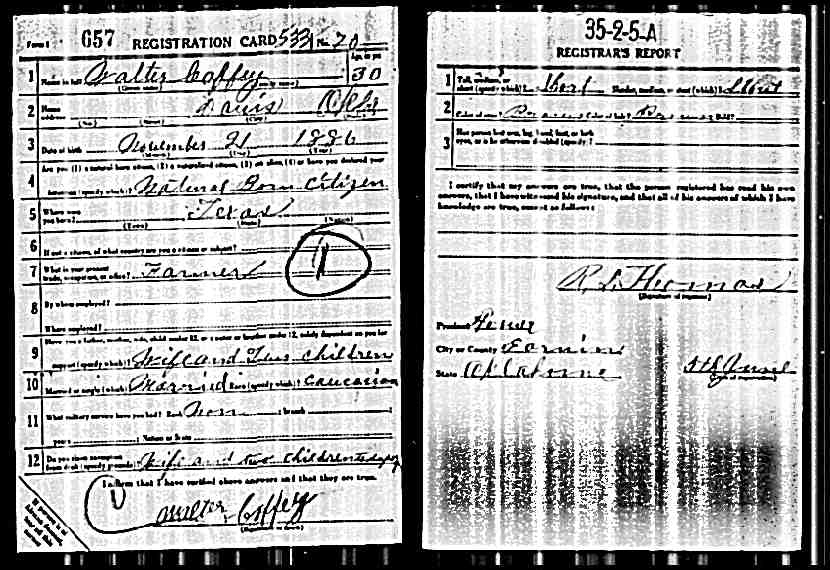 Form 1 657 REGISTRATION CARD 5331 No. 70
1 Name in full Walter Coffey Age, in yrs. 30
(Given name) (Family name)
2 Home address Davis Okla
(No.) (Street) (City) (State)
3 Date of birth November 21 1886
(Month) (Day) (Year)
Are you (1) a natural born citizen, (2) a naturalized citizen, (3) an alien, (4) or have you declared your
4 intention (specify which)? Natural Born Citizen
5 Where were you born? Texas
(Town) (State) (Nation)
6 If not a citizen, of what country are you a citizen or subject?
7 What is your present trade, occupation, or office? Farmer
8 By whom employed?
Where employed?
Have you a father, mother, wife, child under 12, or a sister or brother under 12, solely dependent on you for
9 support (specify which)? Wife and Two children
10 Married or single (which)? Married Race (specify which)? Caucasian
11 What military service have you had? Rank None ; branch
years ; Nation or State
12 Do you claim exemption from draft (specify grounds)? Wife and two children
I affirm that I have verified above answers and that they are true.
Walter Coffey
(Signature or mark)
35-2-5-A
REGISTRAR'S REPORT
1 Tall, medium, or short (specify which)? Short Slender, medium, or stout (which)? Stout
2 Color of eyes? Brown Color of hair? Brown Bald?
3 Has person lost arm, leg, hand, foot, or both eyes, or is he otherwise disabled (specify)?
I certify that my answers are true, that the person registered has read his own
answers, that I have witnessed his signature, and that all of his answers of which I have
knowledge are true, except as follows:
R. L. Thomas
(Signature of registrar)
Precinct
City or County
State Oklahoma 5th June
(Date of registration)